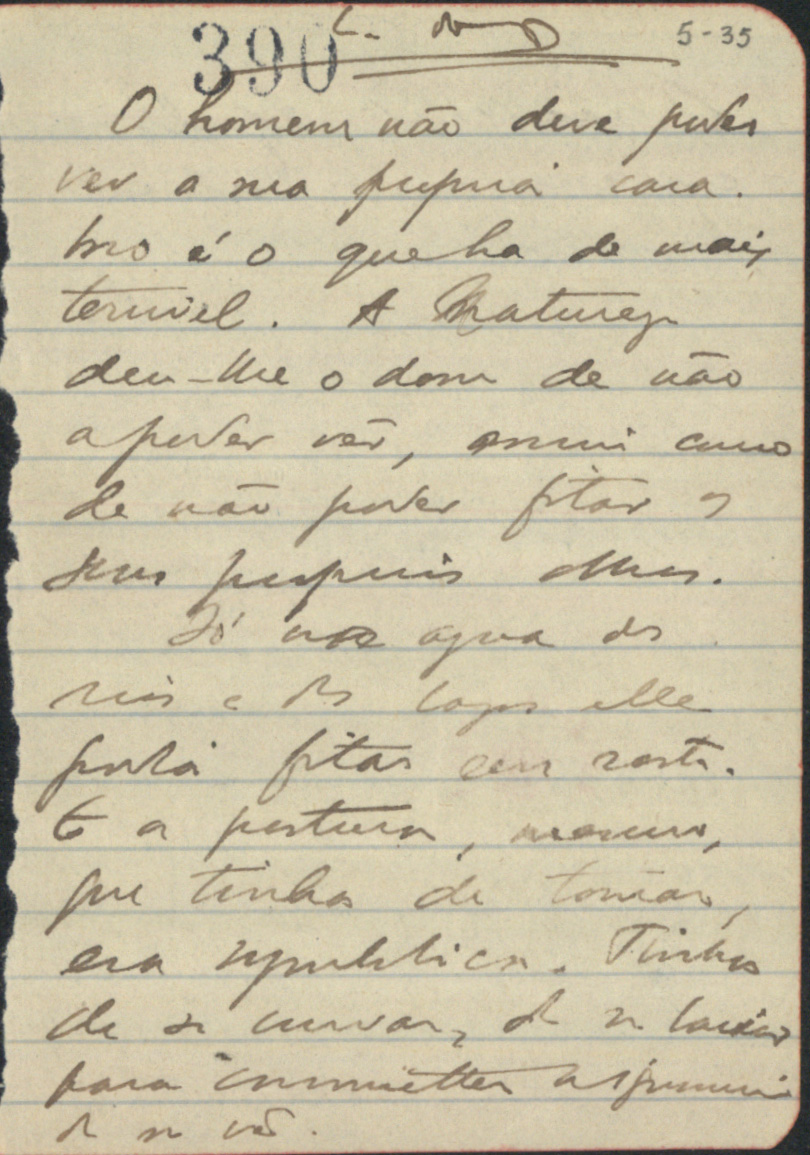 390 L. do D. 5-35
O homem não deve poder
ver a sua propria cara.
Isso é o que ha de mais
terrivel. A Natureza
deu-lhe o dom de não
a poder vêr, assim como
de não poder fitar os
seus proprios olhos.
Só na agua dos
rios e dos lagos elle
podia fitar seu rosto.
E a postura, mesmo,
que tinha de tomar,
era symbolica. Tinha
de se curvar, de se baixar
para commetter a ignominia
de se vêr.